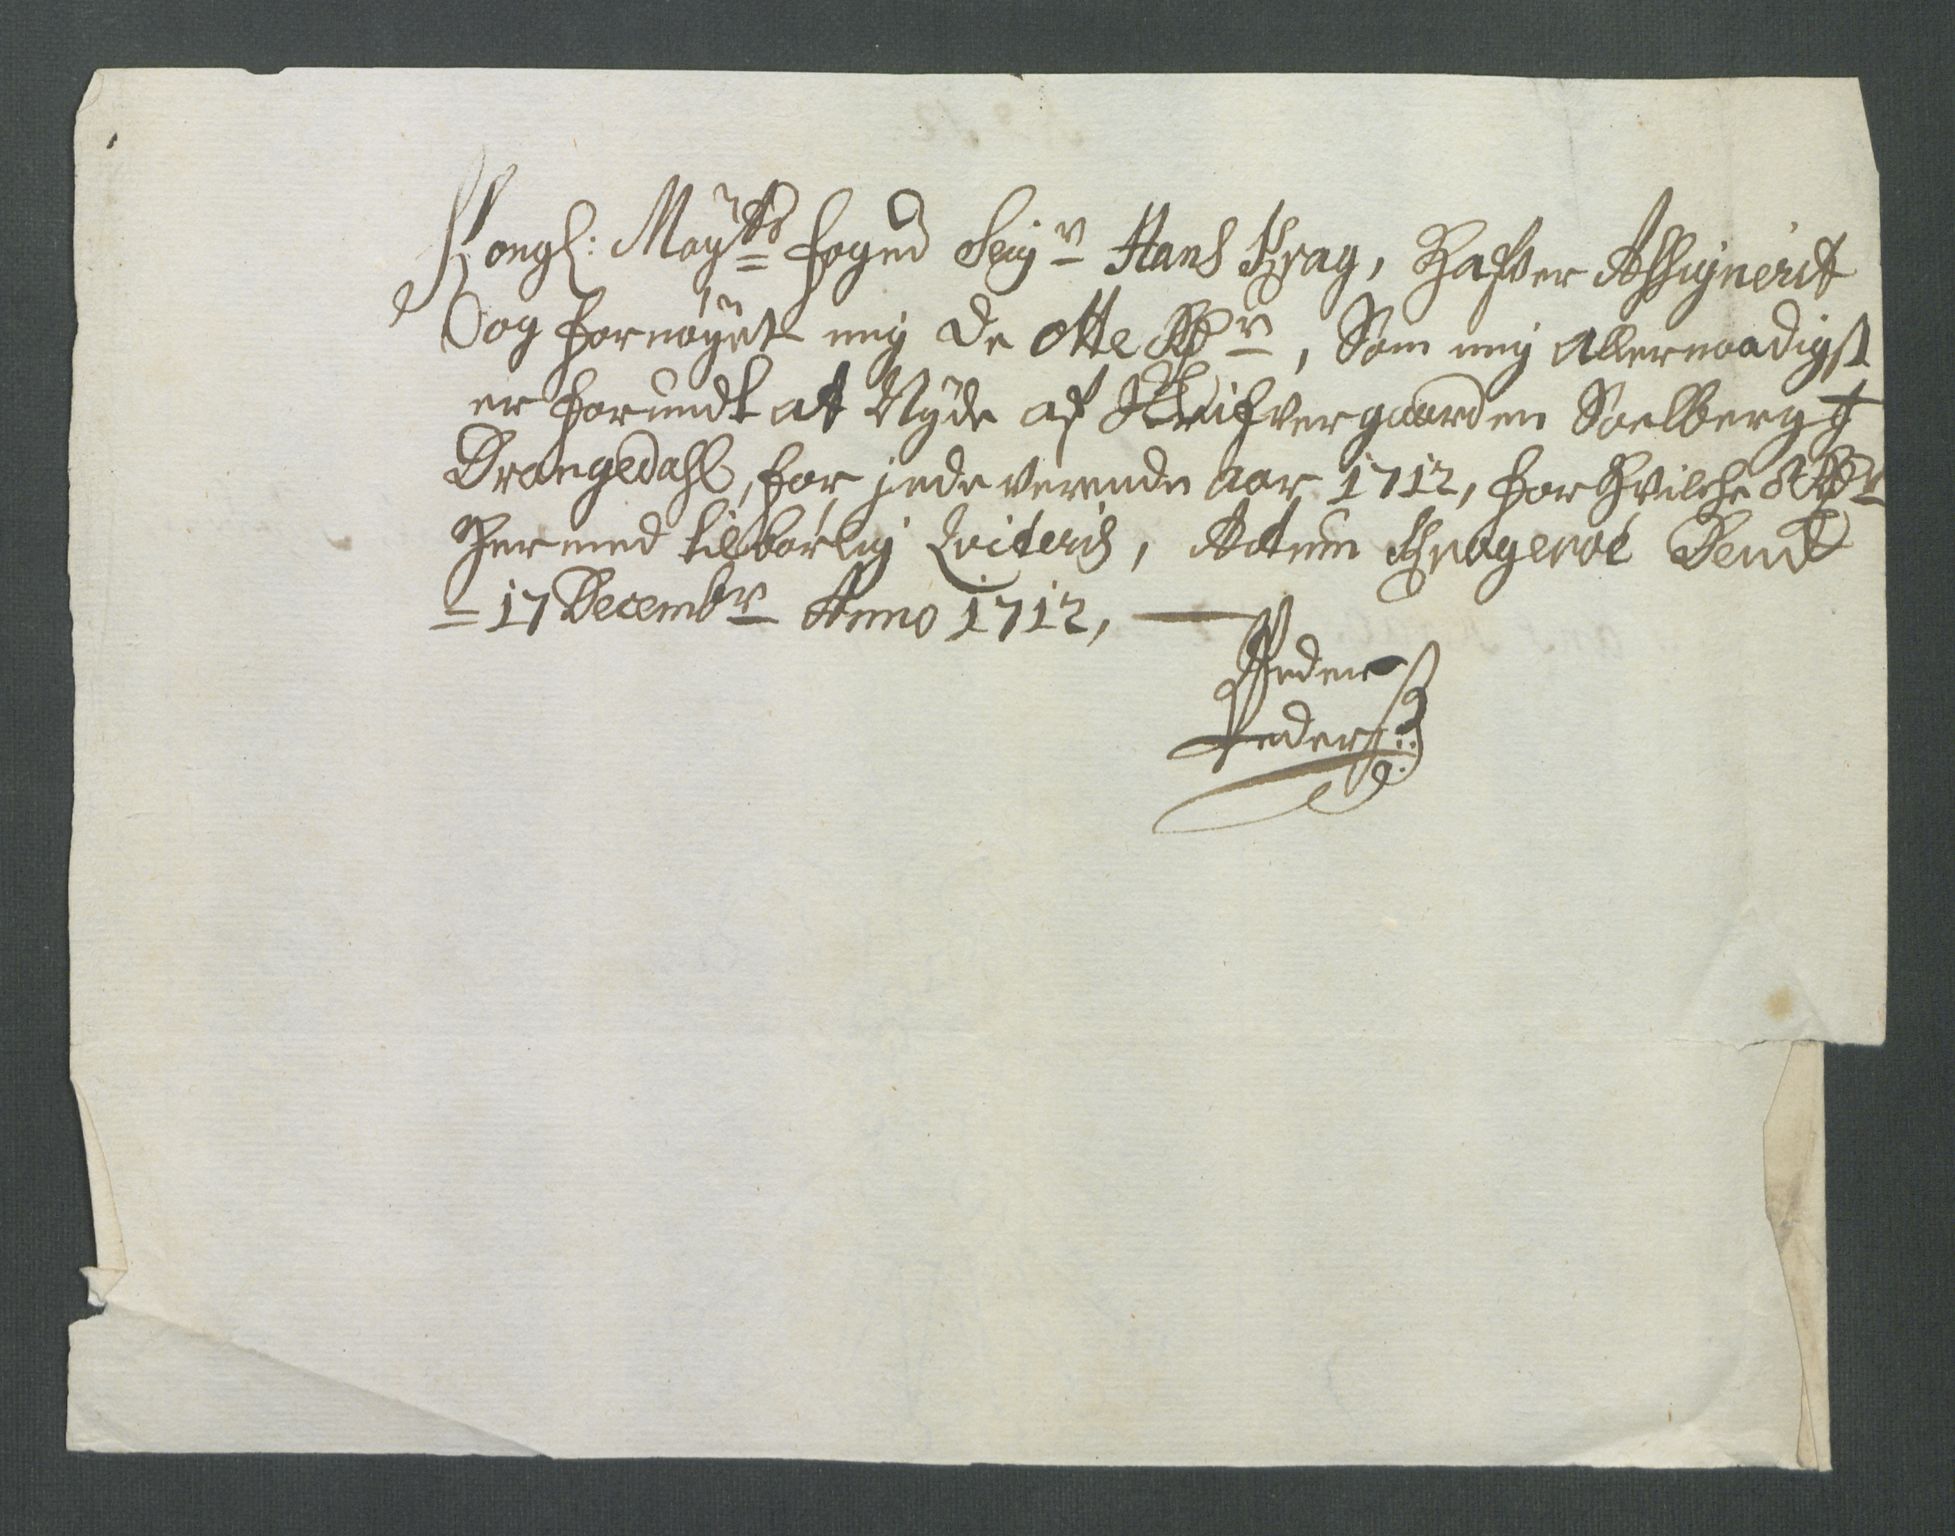 Kongl: May:ts foged Seigr Hans Krag, Hafver Assignerit
og fornöyet mig de otte Rdr, Som mig allernaadigst
er forundt at Nyde af Skrifvergaarden Soelberg i
Drangedahl, for jndeverende aar 1712, for hvilche 8 Rdr
hermed tilbørlig Qviteris, Actum Kragerøe Dend
17 Decembr Anno 1712,
Peder
Peders: